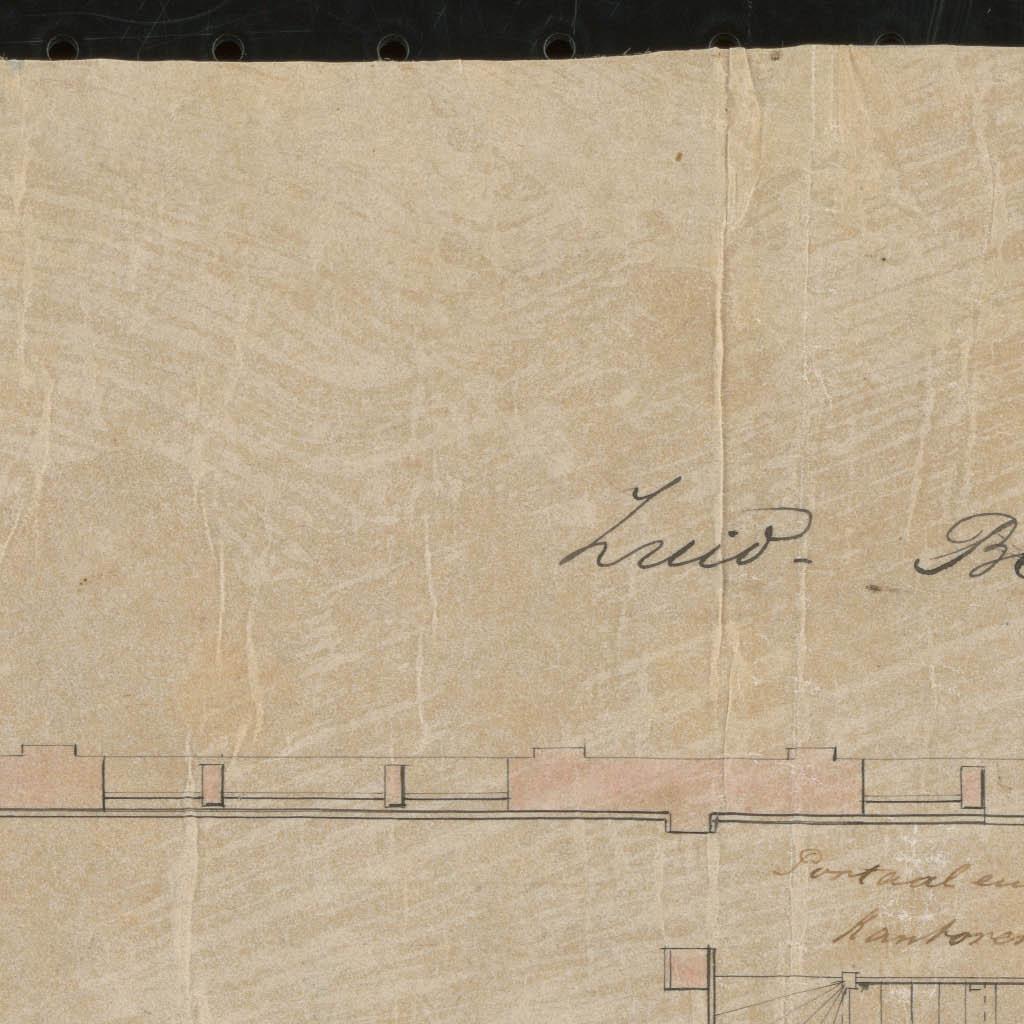 Zuid-
Portaal en
Kantoren